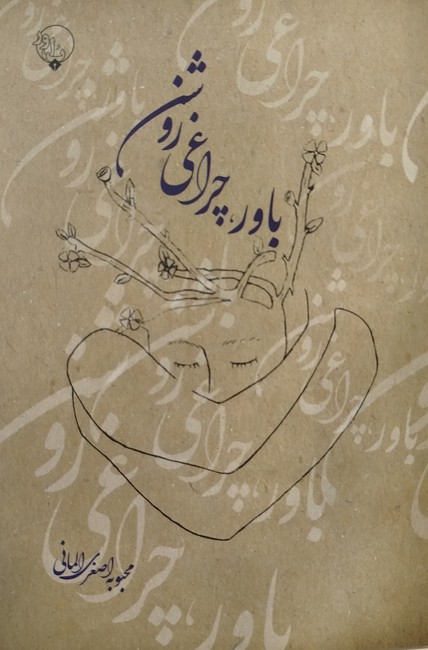 باور، چراغی روشن
محبوبه اصغری المانی